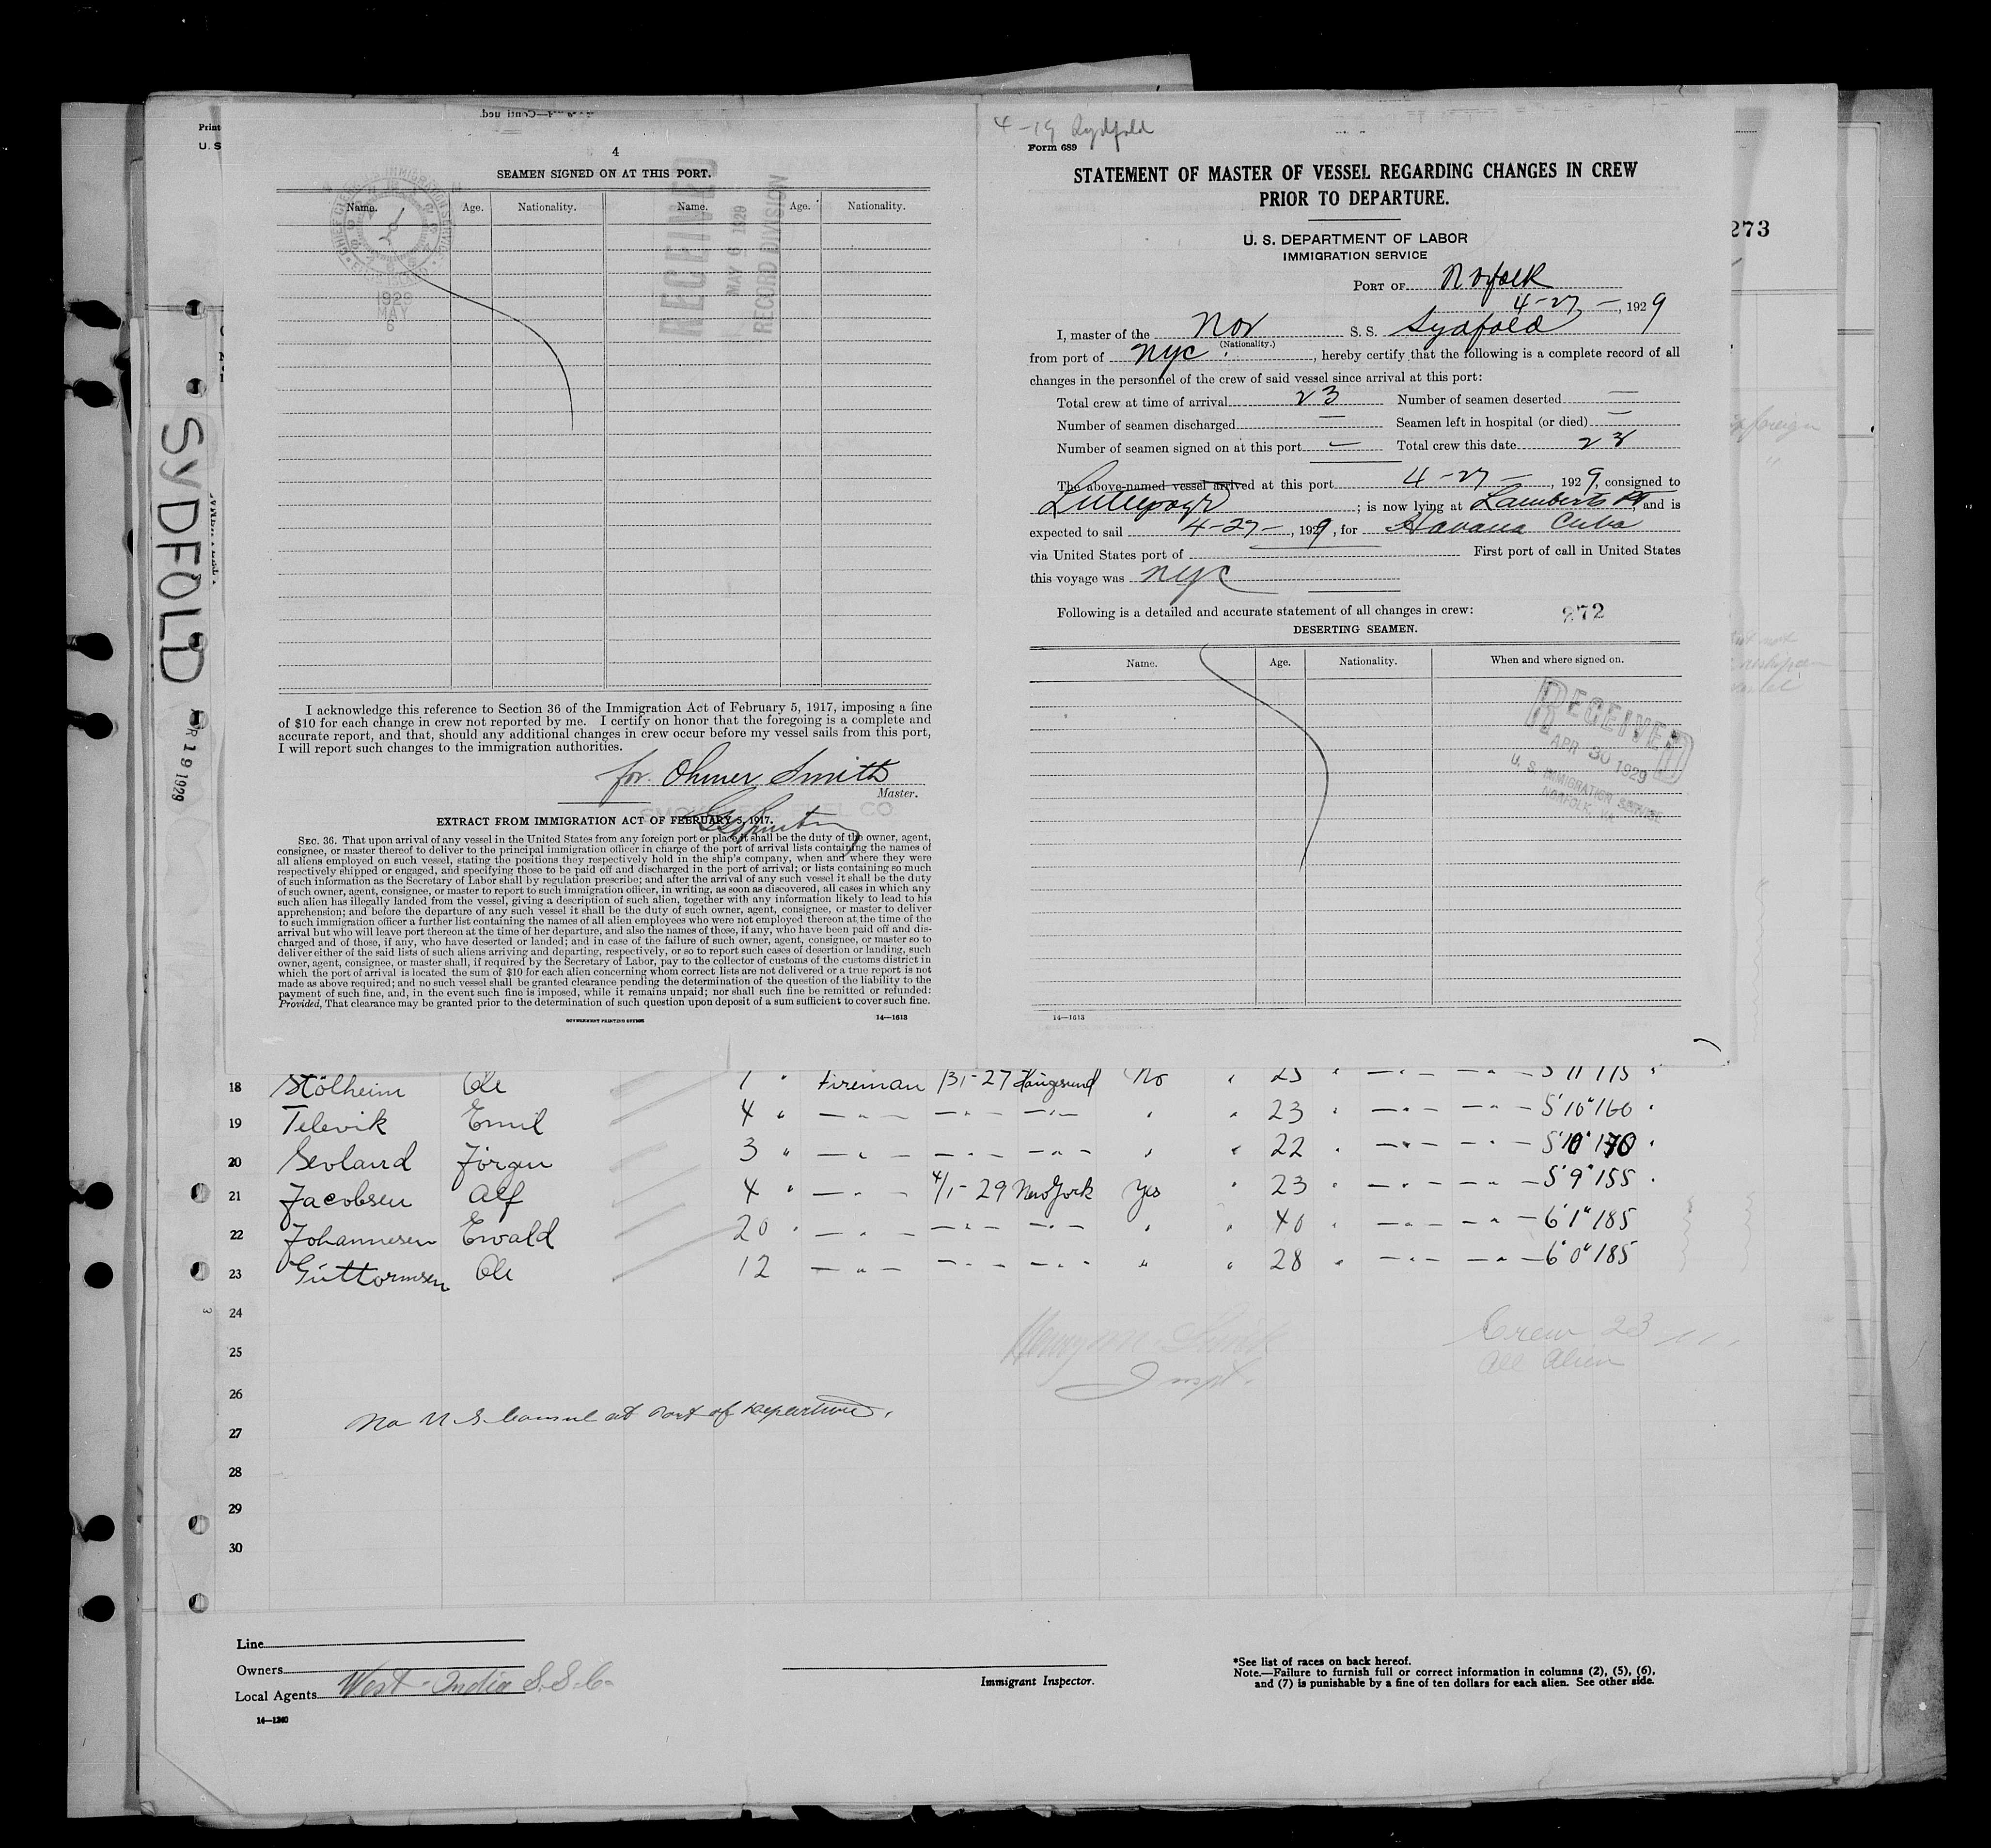 4
SEAMEN SIGNED ON AT THIS PORT.
Name. Age. Nationality. Name. Age. Nationality.
1929
MAY
6
RECEIVED
MAY 6 1929
RECORD DIVISION
I acknowledge this reference to Section 36 of the Immigration Act of February 5, 1917, imposing a fine
of $10 for each change in crew not reported by me. I certify on honor that the foregoing is a complete and
accurate report, and that, should any additional changes in crew occur before my vessel sails from this port,
I will report such changes to the immigration authorities.
for Ohmer Smith
Master.
EXTRACT FROM IMMIGRATION ACT OF FEBRUARY 5, 1917.
SEC. 36. That upon arrival of any vessel in the United States from any foreign port or place it shall be the duty of the owner, agent,
consignee, or master thereof to deliver to the principal immigration officer in charge of the port of arrival lists containing the names of
all aliens employed on such vessel, stating the positions they respectively hold in the ship's company, when and where they were
respectively shipped or engaged, and specifying those to be paid off and discharged in the port of arrival; or lists containing so much
of such information as the Secretary of Labor shall by regulation prescribe; and after the arrival of any such vessel it shall be the duty
of such owner, agent, consignee, or master to report to such immigration officer, in writing, as soon as discovered, all cases in which any
such alien has illegally landed from the vessel, giving a description of such alien, together with any information likely to lead to his
apprehension; and before the departure of any such vessel it shall be the duty of such owner, agent, consignee, or master to deliver
to such immigration officer a further list containing the names of all alien employees who were not employed thereon at the time of the
arrival but who will leave port thereon at the time of her departure, and also the names of those, if any, who have been paid off and dis-
charged and of those, if any, who have deserted or landed; and in case of the failure of such owner, agent, consignee, or master so to
deliver either of the said lists of such aliens arriving and departing, respectively, or so to report such cases of desertion or landing, such
owner, agent, consignee, or master shall, if required by the Secretary of Labor, pay to the collector of customs of the customs district in
which the port of arrival is located the sum of $10 for each alien concerning whom correct lists are not delivered or a true report is not
made as above required; and no such vessel shall be granted clearance pending the determination of the question of the liability to the
payment of such fine, and, in the event such fine is imposed, while it remains unpaid; nor shall such fine be remitted or refunded:
Provided, That clearance may be granted prior to the determination of such question upon deposit of a sum sufficient to cover such fine.
GOVERNMENT PRINTING OFFICE 14—1613
SYDFOLD
19 1929
4-19 Sydfold
Form 689
STATEMENT OF MASTER OF VESSEL REGARDING CHANGES IN CREW
PRIOR TO DEPARTURE.
U. S. DEPARTMENT OF LABOR
IMMIGRATION SERVICE
PORT OF Norfolk
4-27-, 1929
I, master of the Nor S. S. Sydfold
(Nationality.)
from port of nyc, hereby certify that the following is a complete record of all
changes in the personnel of the crew of said vessel since arrival at this port:
Total crew at time of arrival 23 Number of seamen deserted —
Number of seamen discharged — Seamen left in hospital (or died) —
Number of seamen signed on at this port — Total crew this date 23
The above-named vessel arrived at this port 4-27-, 1929, consigned to
; is now lying at Lamberts Pt, and is
expected to sail 4-27-, 1929, for Havana Cuba
via United States port of First port of call in United States
this voyage was nyc
Following is a detailed and accurate statement of all changes in crew: 272
DESERTING SEAMEN.
Name. Age. Nationality. When and where signed on.
RECEIVED
APR 30 1929
U. S. IMMIGRATION SERVICE
NORFOLK, VA.
14—1613
273
18 Stölheim Ole 1 " Fireman 13/1-27 Haugesund No " 25 " — " — — " — 5'11 175 "
19 Televik Emil 4 " — " — — " — — " — " " 23 " — " — — " — 5'10" 160 "
20 Sevland Jörgen 3 " — " — — " — — " — " " 22 " — " — — " — 5'10" 170 "
21 Jacobsen Alf 4 " — " — 4/1-29 New York Yes " 23 " — " — — " — 5'9" 155 "
22 Johannesen Ewald 20 " — " — — " — — " — " " 40 " — " — — " — 6'1" 185
23 Guttormsen Ole 12 — " — — " — — " — " " 28 " — " — — " — 6'0" 185
24
25
26
27
28
29
30
Smith
Inspt.
Crew 23
all alien
No U S Consul at Port of Departure.
Line
Owners
Local Agents West-India S.S.Co
14—1240
Immigrant Inspector.
*See list of races on back hereof.
Note.—Failure to furnish full or correct information in columns (2), (5), (6),
and (7) is punishable by a fine of ten dollars for each alien. See other side.